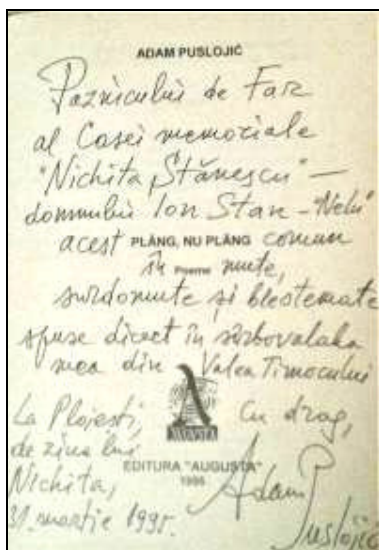 ADAM PUSLOJIĆ
Paznicului de Far
al Casei memoriale
"Nichita Stănescu" –
domnului Ion Stan – "Nelu"
acest PLÂNG, NU PLÂNG comun
în Poeme mute,
surdomute și blestemate
spuse direct în sârbovalaha
mea din Valea Timocului
La Ploiești,
de ziua lui
Nichita,
31. martie 1995.
Cu drag,
AUGUSTA
EDITURA "AUGUSTA"
Adam
Puslojić